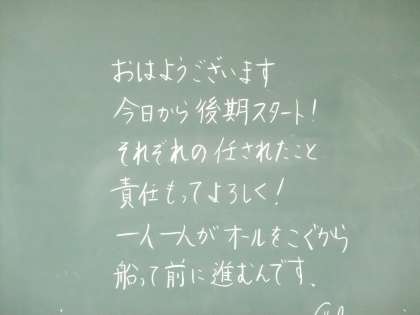 おはようございます
今日から後期スタート!
それぞれの任されたこと
責任もってよろしく!
一人一人がオールをこぐから
船って前に進むんです、